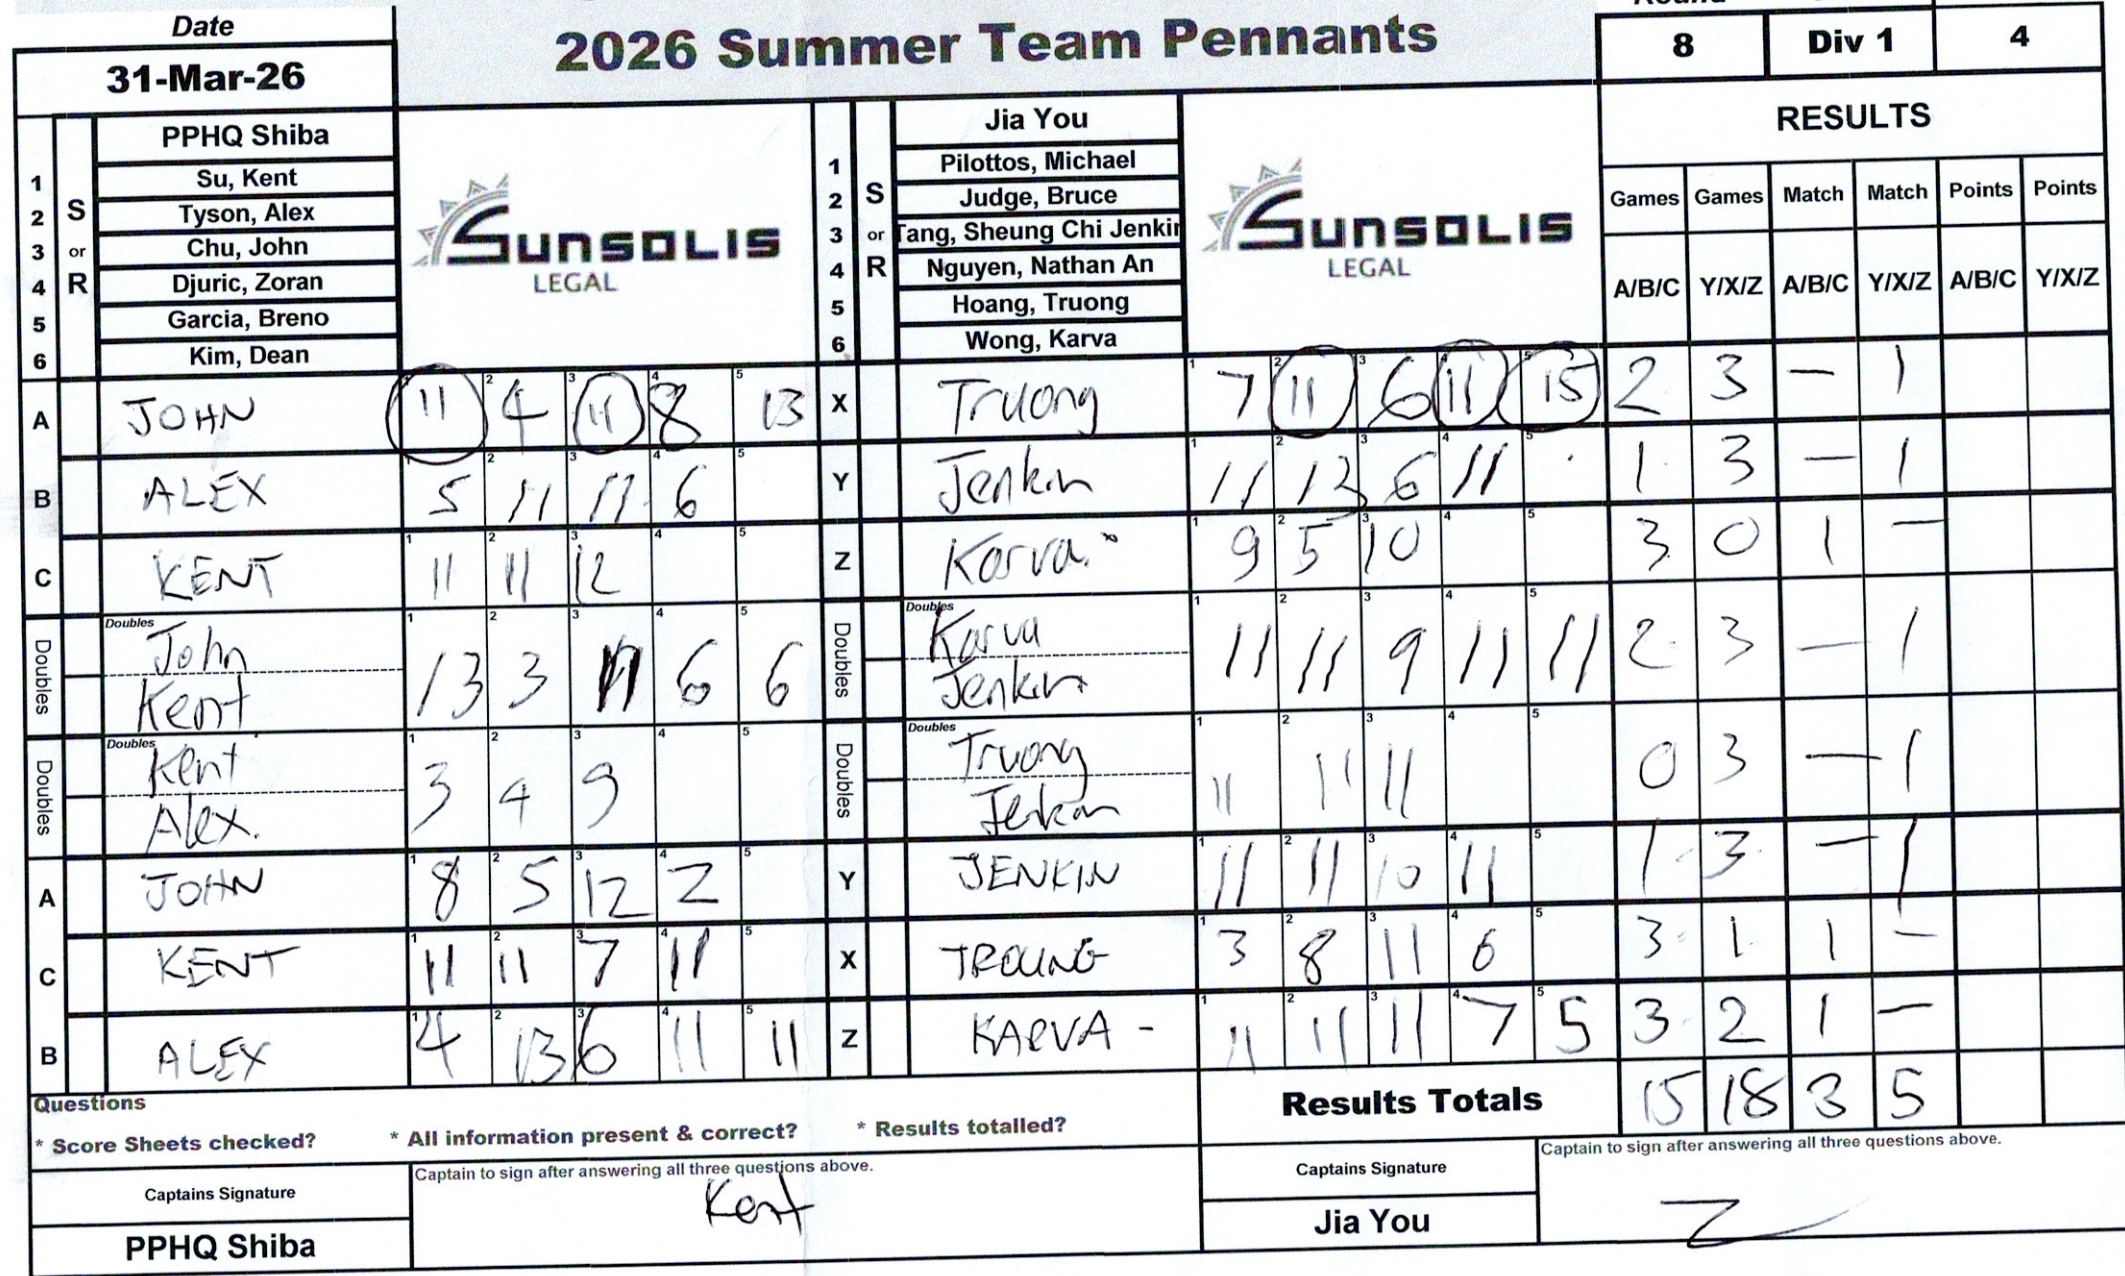 Date
2026 Summer Team Pennants
31-Mar-26
8 Div 1 4
S or R
1 2 3 4 5 6
PPHQ Shiba
Su, Kent
Tyson, Alex
Chu, John
Djuric, Zoran
Garcia, Breno
Kim, Dean
SUNSOLIS
LEGAL
S or R
1 2 3 4 5 6
Jia You
Pilottos, Michael
Judge, Bruce
Tang, Sheung Chi Jenkin
Nguyen, Nathan An
Hoang, Truong
Wong, Karva
SUNSOLIS
LEGAL
RESULTS
Games Games Match Match Points Points
A/B/C Y/X/Z A/B/C Y/X/Z A/B/C Y/X/Z
A JOHN 11 4 11 8 13 X Truong 7 11 6 11 15 2 3 – 1
B ALEX 5 11 11 6 Y Jenkin 11 13 6 11 1 3 – 1
C KENT 11 11 12 Z Karva 9 5 10 3 0 1 –
Doubles John Kent 13 3 11 6 6 Doubles Karva Jenkin 11 11 9 11 11 2 3 – 1
Doubles Kent Alex. 3 4 9 Doubles Truong Jenkin 11 11 11 0 3 – 1
A JOHN 8 5 12 2 Y JENKIN 11 11 10 11 1 3 – 1
C KENT 11 11 7 11 X TROUNG 3 8 11 6 3 1 1 –
B ALEX 4 13 6 11 11 Z KARVA - 11 11 11 7 5 3 2 1 –
Questions
* Score Sheets checked? * All information present & correct? * Results totalled?
Results Totals 15 18 3 5
Captains Signature
Captain to sign after answering all three questions above.
Kent
PPHQ Shiba
Captains Signature
Captain to sign after answering all three questions above.
Jia You